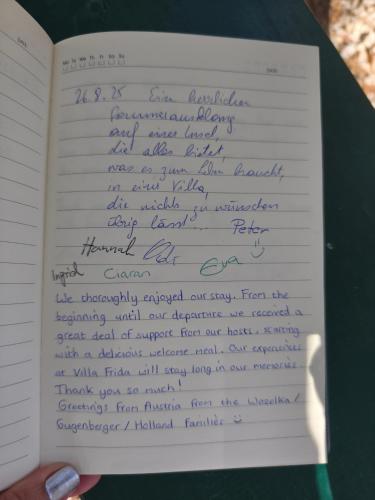 Mo Tu We Th Fr Sa Su
DATE
26.8.25 Ein herrlicher
Sommerausklang
auf einer Insel,
die alles bietet,
was es zum Leben braucht,
in einer Villa,
die nichts zu wünschen
übrig lässt... Peter
Hannah
Ingrid Ciaran Eva
We thoroughly enjoyed our stay. From the
beginning until our departure we received a
great deal of support from our hosts, starting
with a delicious welcome meal. Our experiences
at Villa Frida will stay long in our memories.
Thank you so much!
Greetings from Austria from the /
Gugenberger / Holland Families